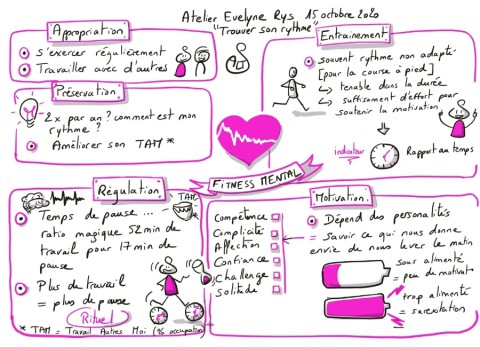 Atelier Evelyne Rys 15 octobre 2020
"Trouver son rythme"
Appropriation
S'exercer régulièrement
Travailler avec d'autres
Préservation
2x par an ? comment est mon
rythme ?
Améliorer son TAM *
Entrainement
souvent rythme non adapté
[pour la course à pied]
tenable dans la durée
suffisamment d'effort pour
soutenir la motivation
indicateur
Rapport au temps
FITNESS MENTAL
Régulation
TAM *
Temps de pause ...
ratio magique 52 min
de travail pour 17 min de
pause
Plus de travail
= plus de pause
Rituel
* TAM = Travail Autres Moi (% occupation)
Motivation
Compétence
Complicité
Affection
Confiance
Challenge
Solitude
Dépend des personalités
= Savoir ce qui nous donne
envie de nous lever le matin
sous alimenté
= peu de motivat°
trop alimenté
= surexitation